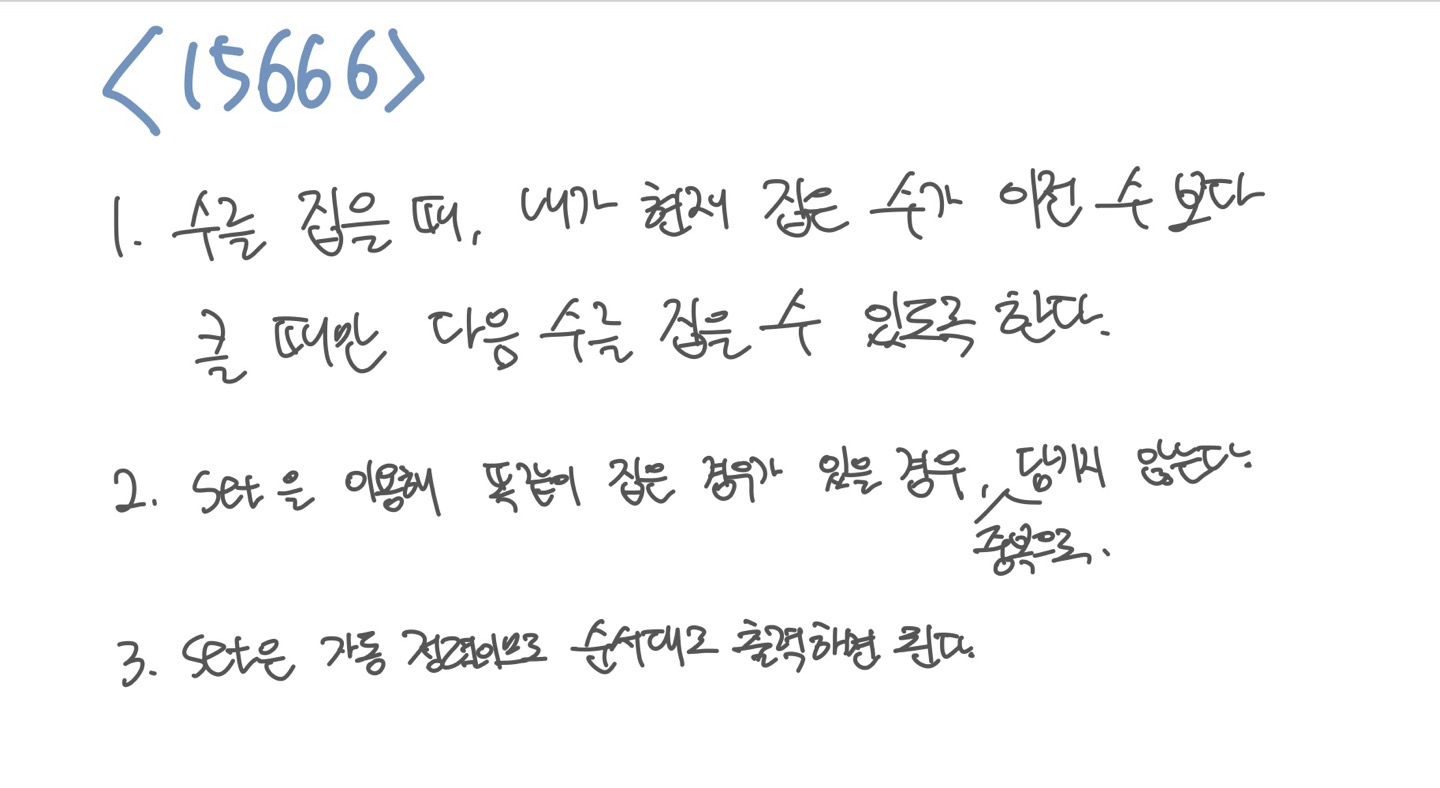 <15666>
1. 수를 집을 때, 내가 현재 집은 수가 이전 수 보다
클 때만 다음 수를 집을 수 있도록 한다.
2. set을 이용해 똑같이 집은 경우가 있을 경우, 담기지 않는다.
중복으로.
3. set은 자동 정렬이므로 순서대로 출력하면 된다.